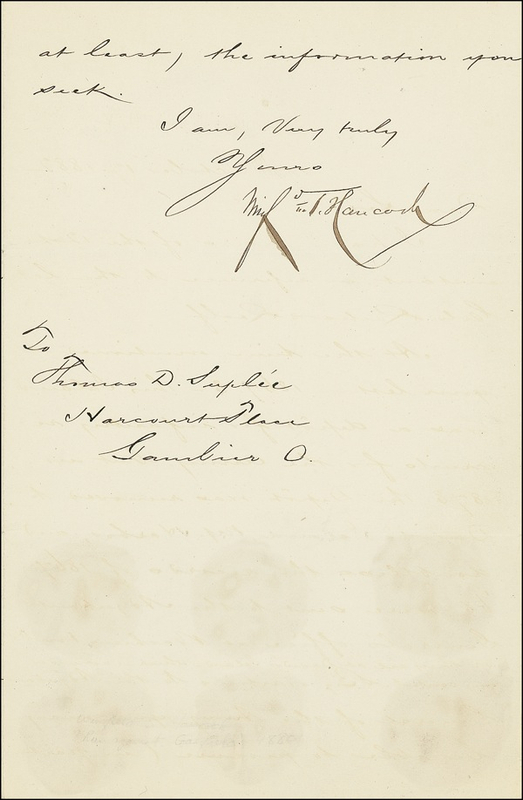 at least, the information you
seek.
I am, Very truly
Yours
Winf'd S. Hancock
To
Thomas D. Suplée
Harcourt Place
Gambier O.